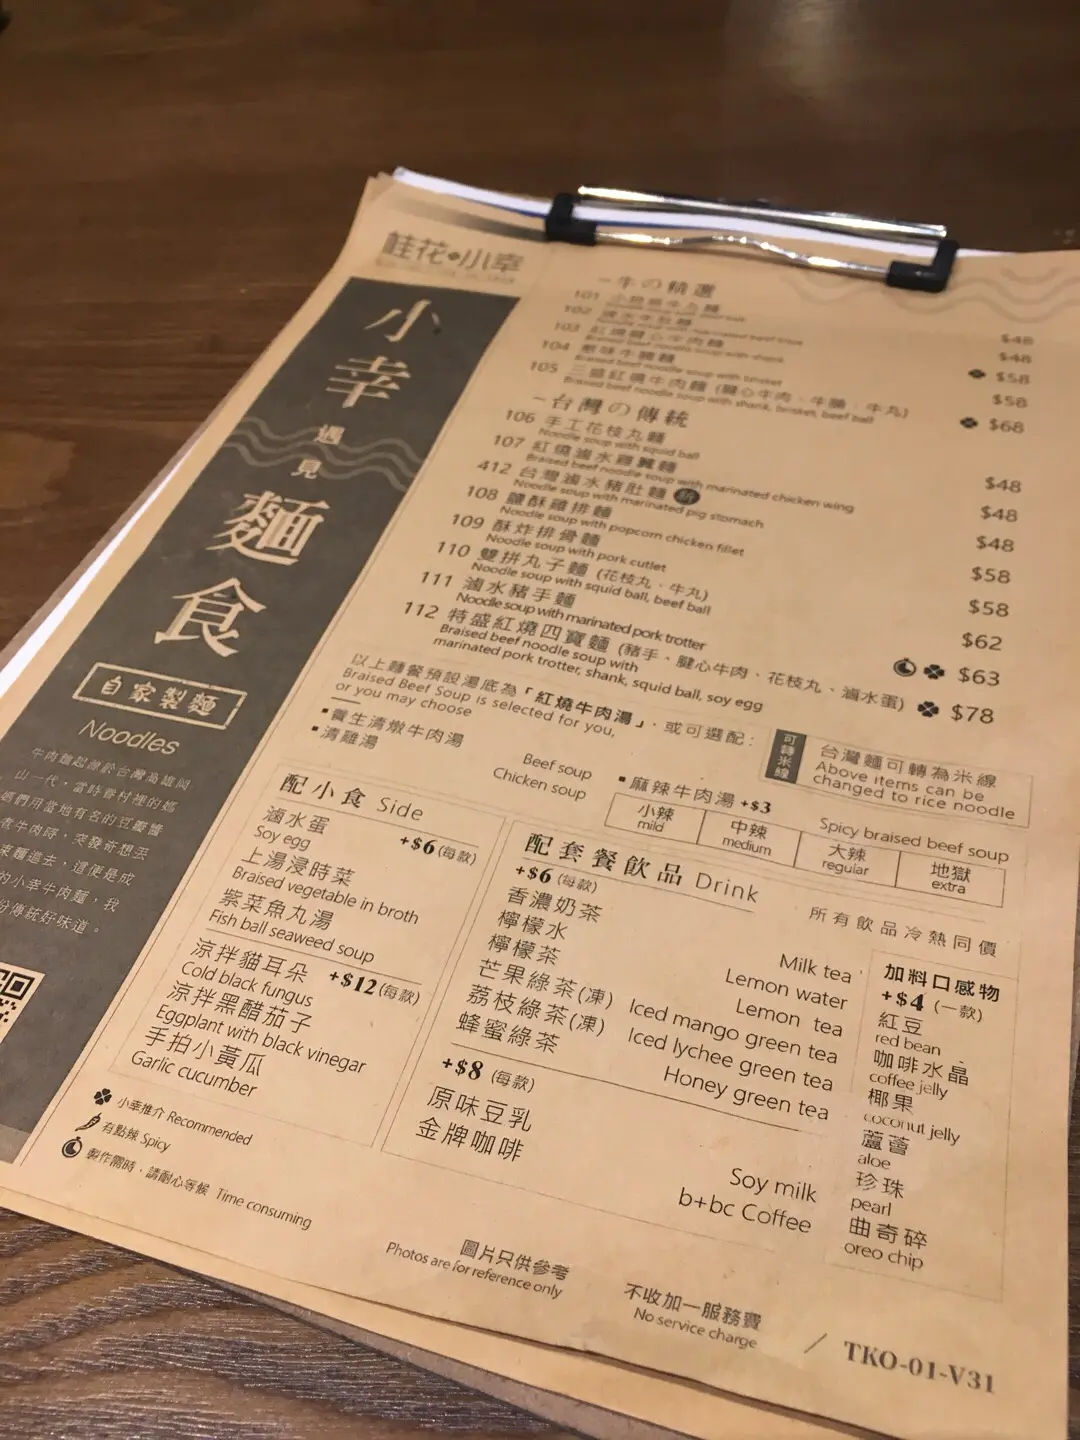 桂花小幸
小幸
遇見
麵食
自家製麵
Noodles
牛肉麵起源於台灣高雄岡
山一代,當時眷村裡的媽
媽們用當地有名的豆瓣醬
煮牛肉時,突發奇想丟
麵進去,這便是成
的小幸牛肉麵,我
份傳統好味道。
牛の精選
101
102
103 紅燒腱心牛肉麵 $58
Braised beef noodle soup with shank
104 牛腩麵 $58
Braised beef noodle soup with brisket
105 三盛紅燒牛肉麵 (腱心牛肉、牛腩、牛丸) $68
Braised beef noodle soup with shank, brisket, beef ball
台灣の傳統
106 手工花枝丸麵 $48
Noodle soup with squid ball
107 紅燒滷水雞翼麵 $48
Braised beef noodle soup with marinated chicken wing
412 台灣滷水豬肚麵 $48
Noodle soup with marinated pig stomach
108 鹽酥雞排麵 $58
Noodle soup with popcorn chicken fillet
109 酥炸排骨麵 $58
Noodle soup with pork cutlet
110 雙拼丸子麵 (花枝丸、牛丸) $62
Noodle soup with squid ball, beef ball
111 滷水豬手麵 $63
Noodle soup with marinated pork trotter
112 特盛紅燒四寶麵 (豬手、腱心牛肉、花枝丸、滷水蛋) $78
Braised beef noodle soup with
marinated pork trotter, shank, squid ball, soy egg
以上麵餐預設湯底為「紅燒牛肉湯」,或可選配:
Braised Beef Soup is selected for you,
or you may choose
▪養生清燉牛肉湯 Beef soup
▪清雞湯 Chicken soup
▪麻辣牛肉湯 +$3 Spicy braised beef soup
小辣 中辣 大辣 地獄
mild medium regular extra
可轉米線
台灣麵可轉為米線
Above items can be
changed to rice noodle
配小食 Side
+$6 (每款)
滷水蛋
Soy egg
上湯浸時菜
Braised vegetable in broth
紫菜魚丸湯
Fish ball seaweed soup
+$12 (每款)
涼拌貓耳朵
Cold black fungus
涼拌黑醋茄子
Eggplant with black vinegar
手拍小黃瓜
Garlic cucumber
配套餐飲品 Drink
所有飲品冷熱同價
+$6 (每款)
香濃奶茶 Milk tea
檸檬水 Lemon water
檸檬茶 Lemon tea
芒果綠茶(凍) Iced mango green tea
荔枝綠茶(凍) Iced lychee green tea
蜂蜜綠茶 Honey green tea
+$8 (每款)
原味豆乳 Soy milk
金牌咖啡 b+bc Coffee
加料口感物
+$4 (一款)
紅豆
red bean
咖啡水晶
coffee jelly
椰果
coconut jelly
蘆薈
aloe
珍珠
pearl
曲奇碎
oreo chip
小幸推介 Recommended
有點辣 Spicy
製作需時,請耐心等候 Time consuming
圖片只供參考
Photos are for reference only
不收加一服務費
No service charge
/ TKO-01-V31